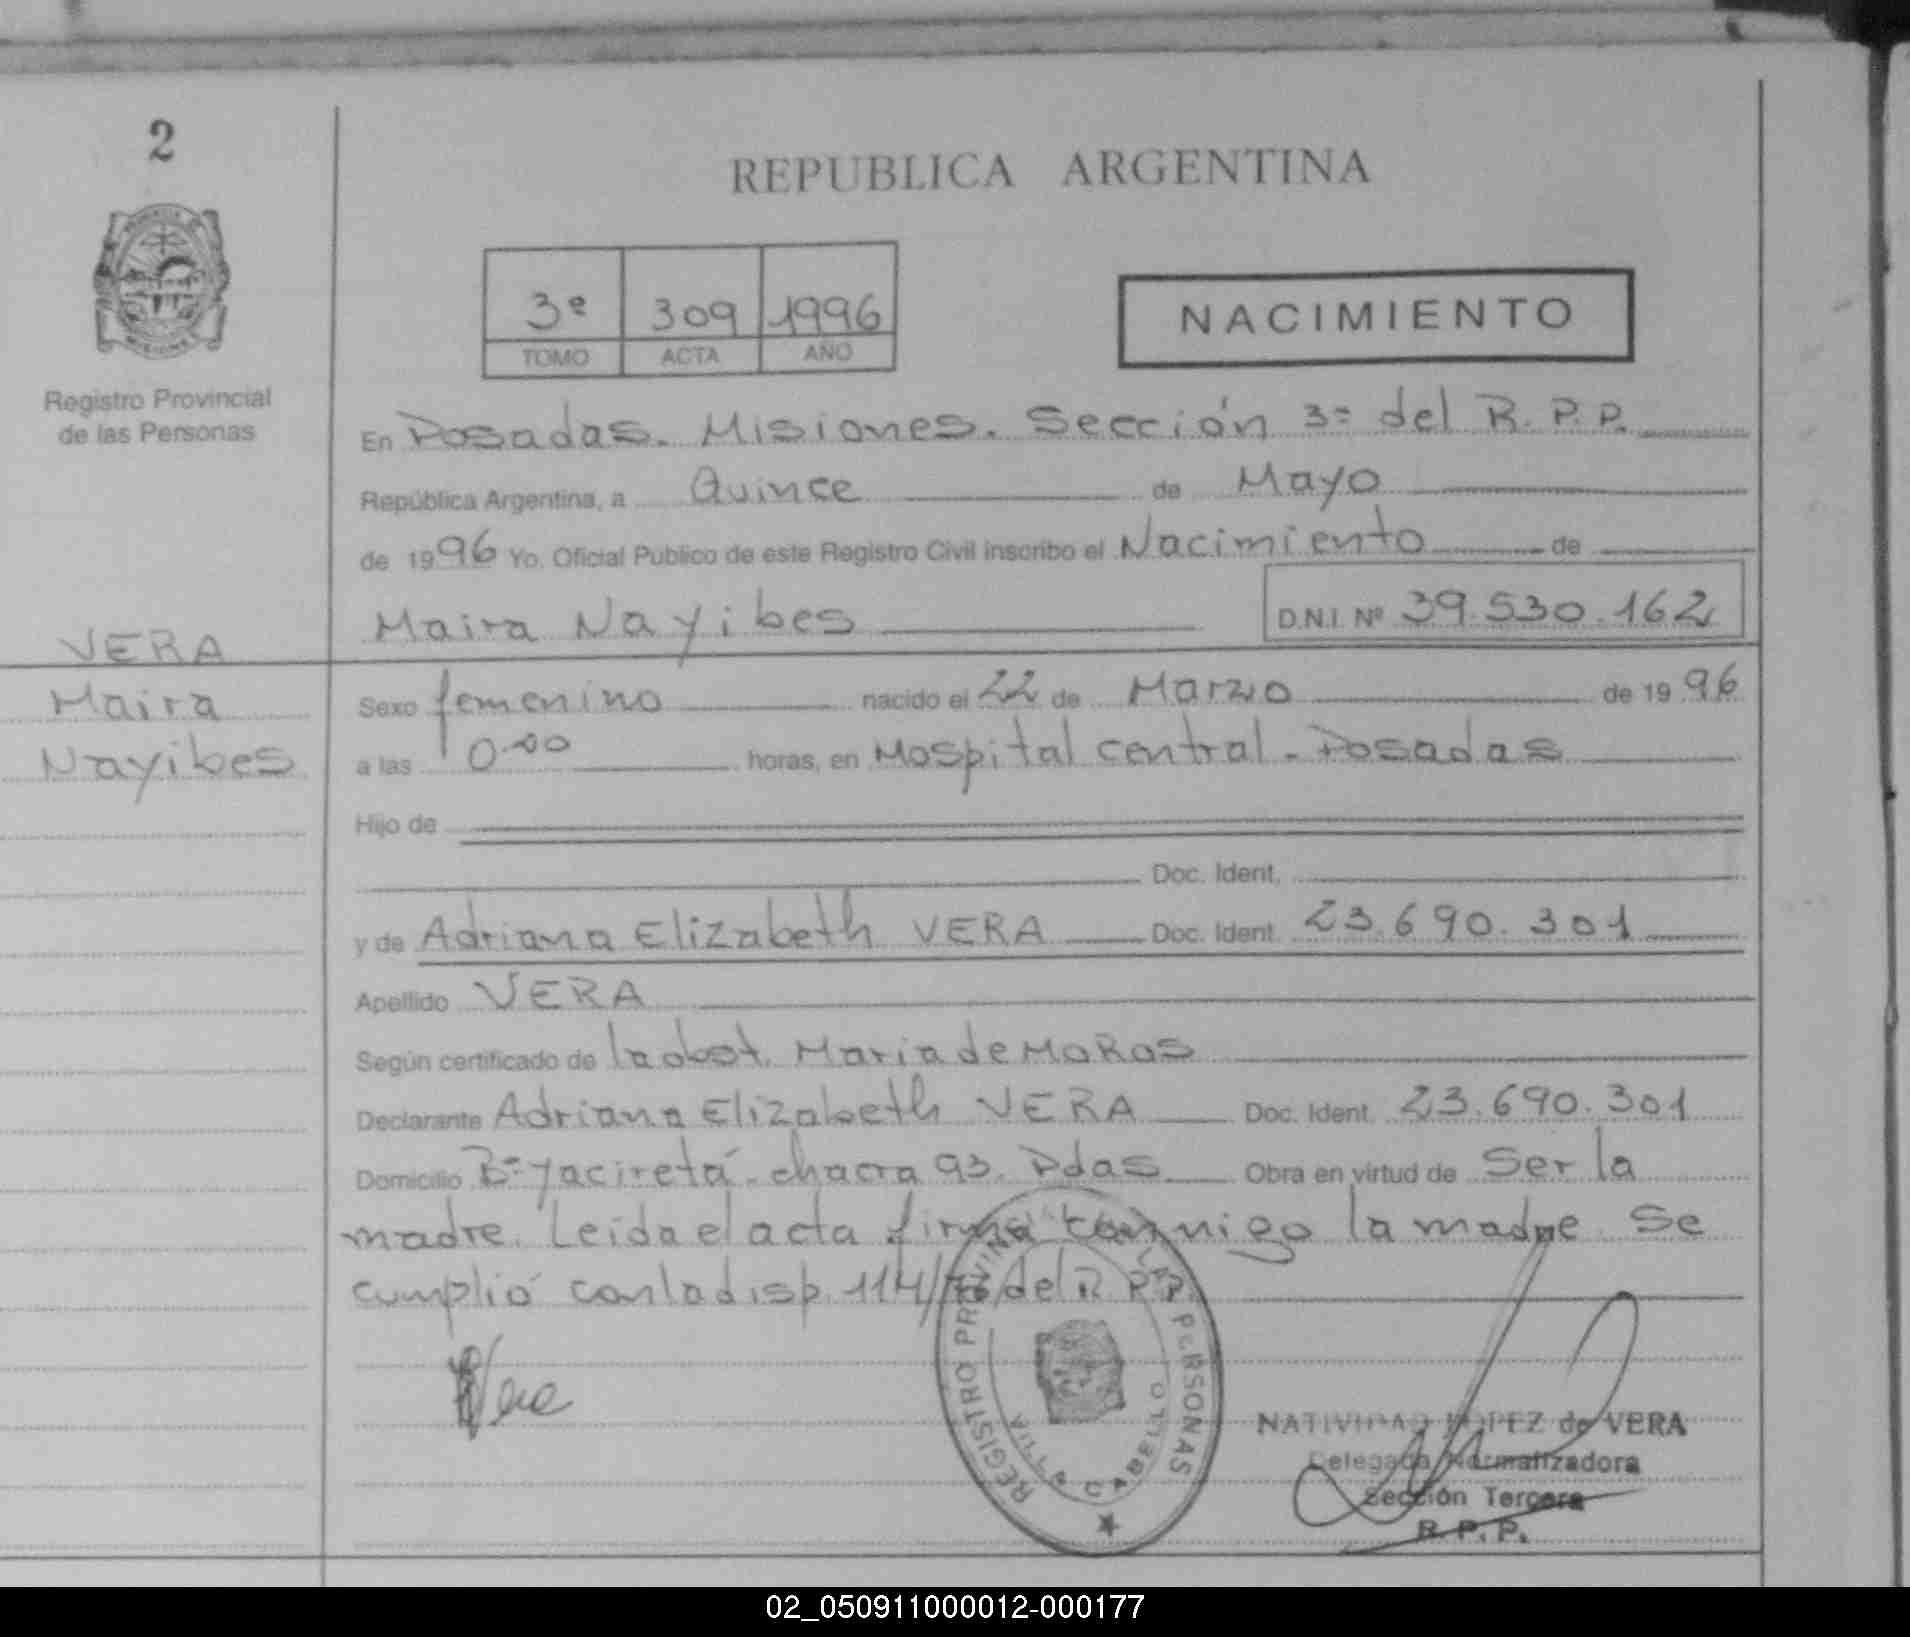 2
REPUBLICA ARGENTINA
3º 309 1996
TOMO ACTA AÑO
NACIMIENTO
Registro Provincial
de las Personas
En Posadas. Misiones. Sección 3º del R. P. P.
República Argentina, a Quince de Mayo
de 1996 Yo, Oficial Público de este Registro Civil inscribo el Nacimiento de
Maira Nayibes D.N.I. Nº 39.530.162
VERA
Maira
Nayibes
Sexo femenino nacido el 22 de Marzo de 1996
a las 0.00 horas, en Hospital central - Posadas
Hijo de
Doc. Ident.
y de Adriana Elizabeth VERA Doc. Ident. 23.690.301
Apellido VERA
Según certificado de la obst. Maria de MORAS
Declarante Adriana Elizabeth VERA Doc. Ident. 23.690.301
Domicilio Bº Yaciretá - chacra 93. Pdas Obra en virtud de Ser la
madre. Leida el acta firma conmigo la madre. Se
cumplió con la disp. 114/76 del R. P. P.
Vera
REGISTRO PROVINCIAL DE LAS PERSONAS
VILLA CABELLO
NATIVIDAD LOPEZ de VERA
Delegada Normalizadora
Sección Tercera
R. P. P.
02_050911000012-000177